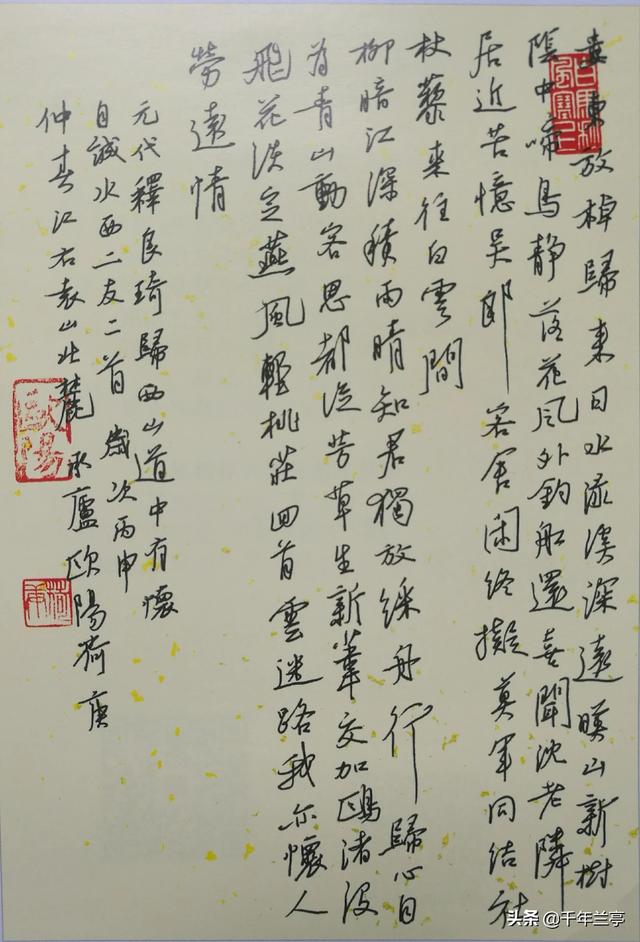 東放棹歸來日水淥溪深遠暎山新樹
陰中啼鳥靜落花風外釣船還喜聞沈老隣
居近苦憶吳郎客舍閑終擬莫軍同結社
杖藜來往白雲間
柳暗江深積雨晴知君獨放綵舟行歸心日
為青山動客思都從芳草生新葦交加鷗渚沒
飛花淡定燕風輕桃莊回首雲迷路我亦懷人
勞遠情
元代釋良琦歸西山道中有懷
自誠水西二友二首歲次丙申
仲春江右袁山北麓廬歐陽荷庚
歐陽
荷庚
头条 @千年兰亭